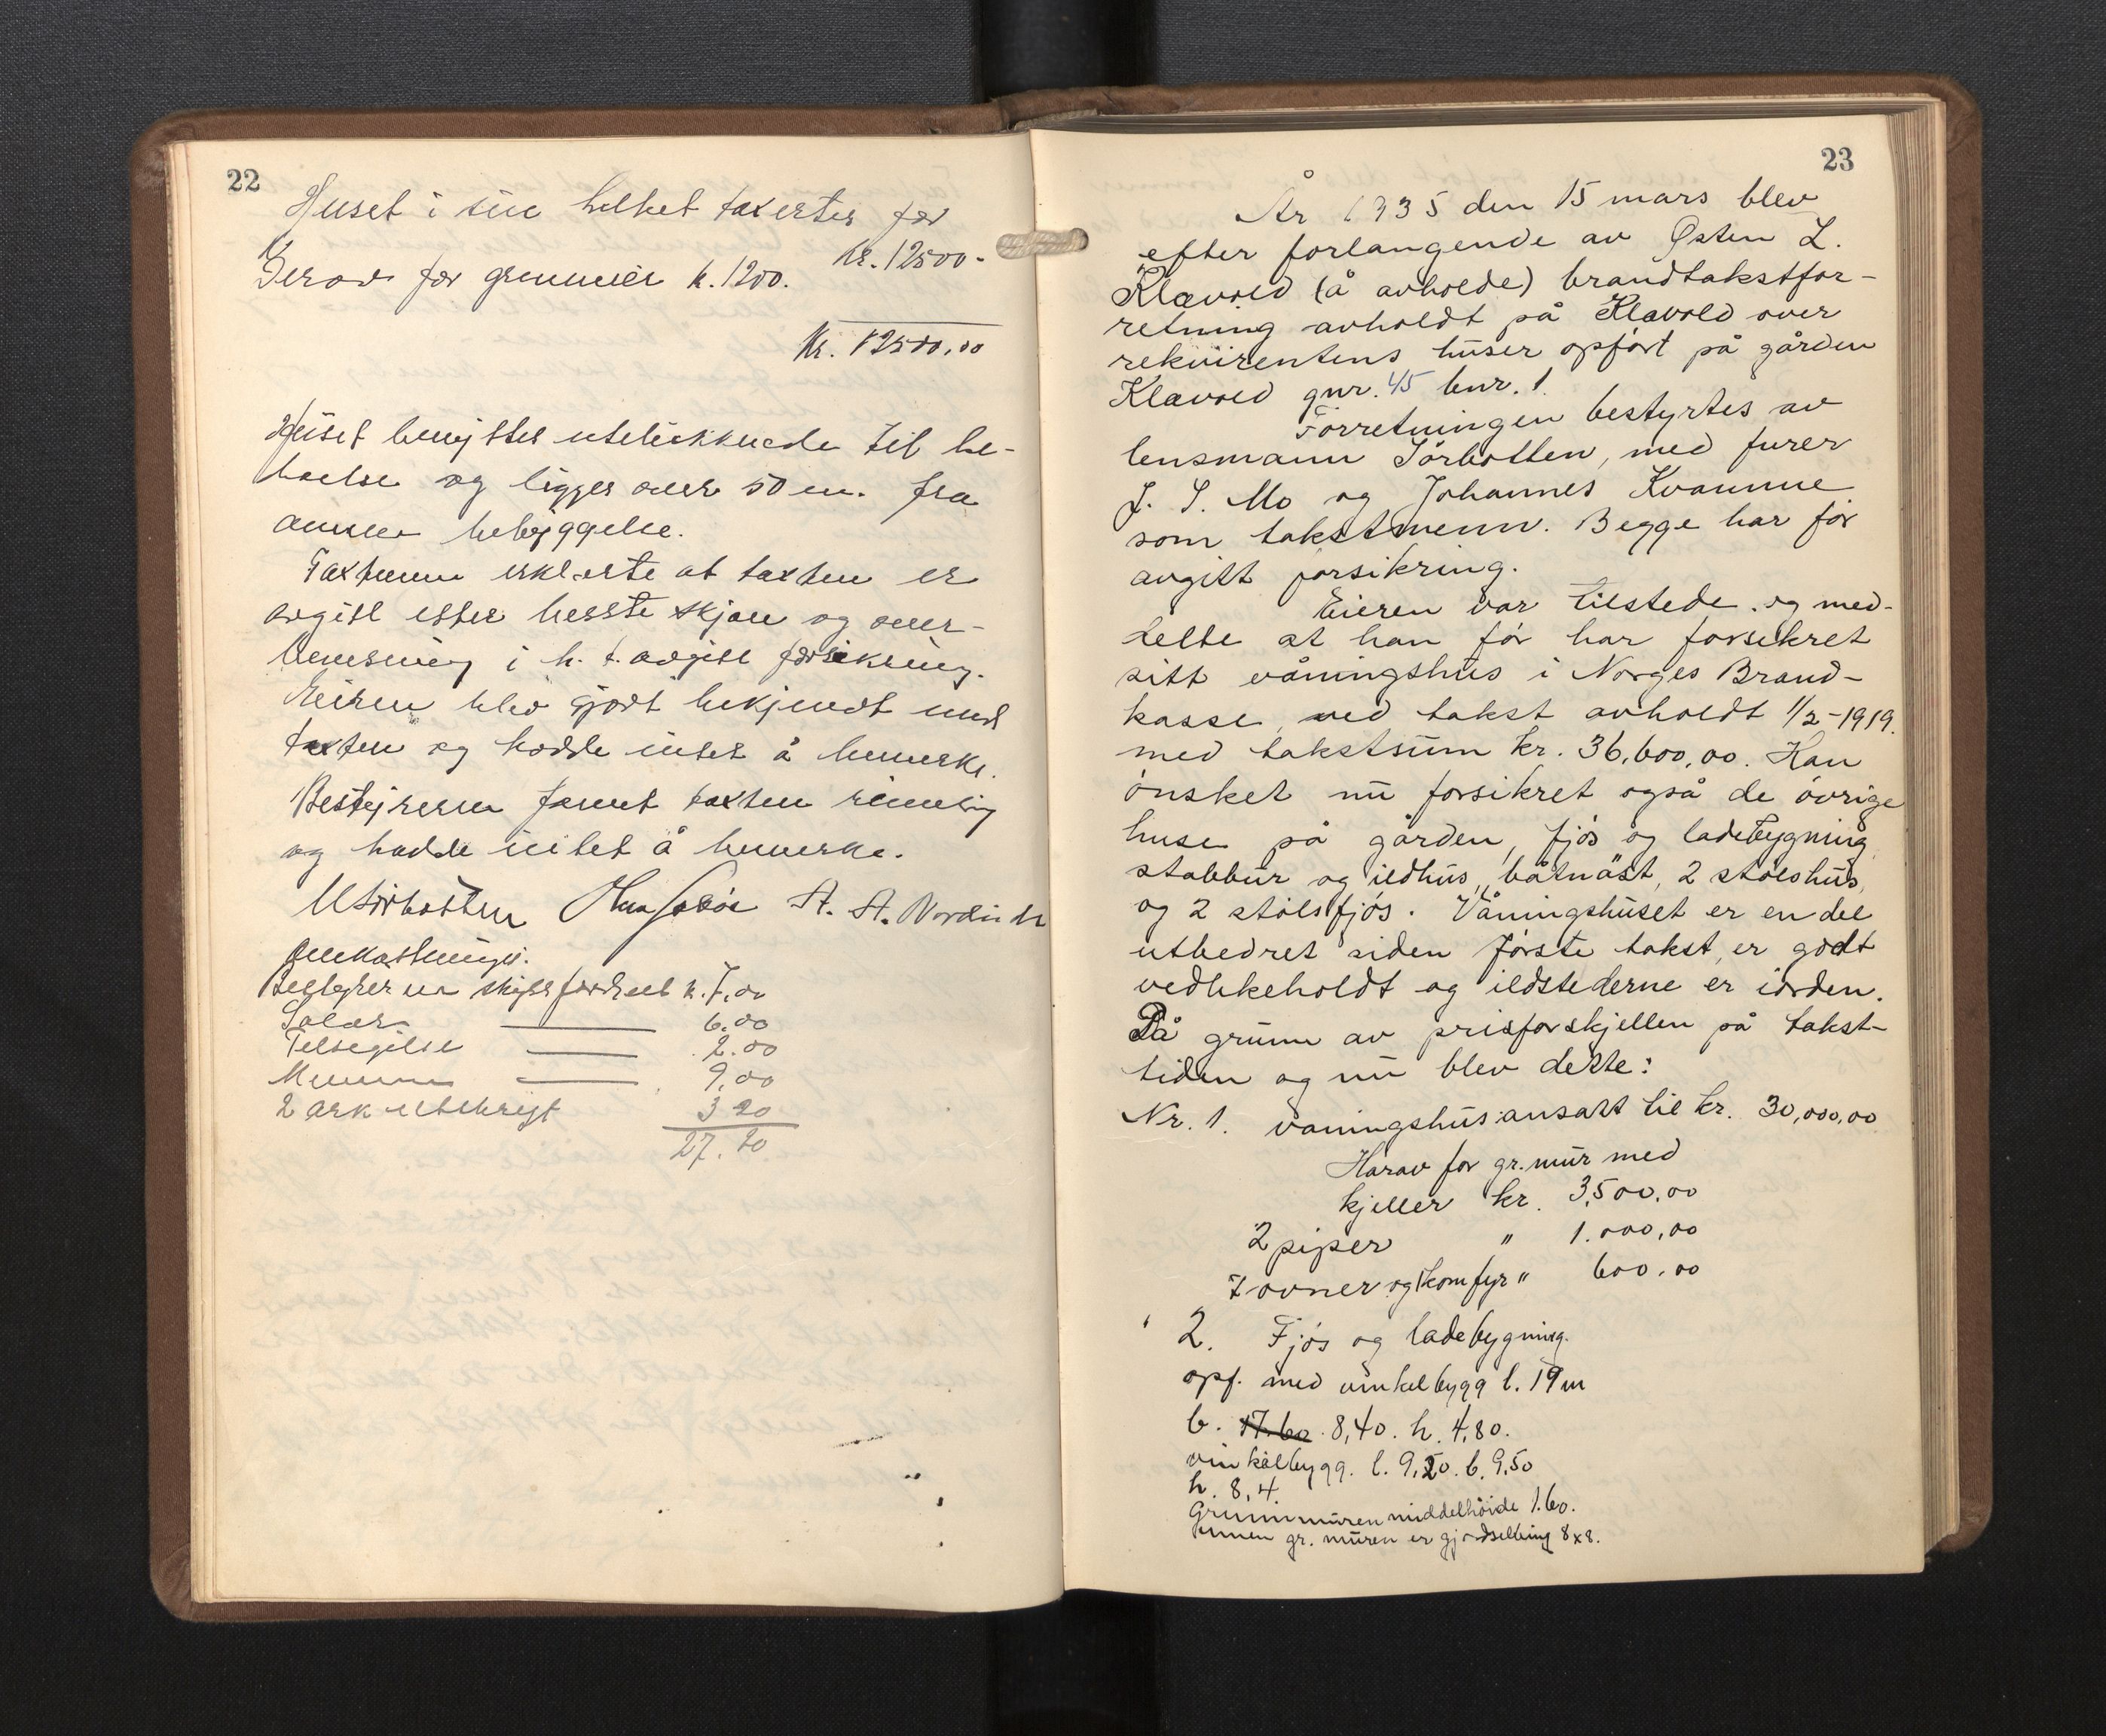 22
Huset i sin helhet taxertes for
kr. 12500.-
Derav for grunmur kr. 1200.
Kr. 12500,00
Huset benyttes utelukkende til be-
boelse og ligger over 50 m. fra
annen bebyggelse.
Taxtmenn erklærte at taxten er
avgitt efter beste skjøn og over-
bevisning i h. t. avgitt forsikring.
Eieren blev gjort bekjendt med
taxten og hadde intet å bemerke.
Bestyreren fannt taxten rimelig
og hadde intet å bemerke.
A. A. Nordvik
Omkostninger.
Bestyreren skyss fordeelt k. 7,00
Salær 6.00
Tilsigelse 2.00
Mennene 9,00
2 ark utskrift 3 20
27.20
23
År 1935 den 15 mars blev
efter forlangende av Østen L.
Klævold (å avholde) brandtakstfor-
retning avholdt på Klævold over
rekvirentens huser opført på gården
Klævold gnr. 45 bnr. 1.
Forretningen bestyrtes av
lensmann Sørbotten, med furer
J. S. Mo og Johannes Kvamme
som takstmenn. Begge har før
avgitt forsikring.
Eieren var tilstede og med-
delte at han før har forsikret
sitt våningshus i Norges Brand-
kasse, ved takst avholdt 1/2-1919.
med takstsum kr. 36,600,00. Han
ønsket nu forsikret også de øvrige
huse på gården, fjøs og ladebygning
stabbur og ildhus, båtnäst, 2 stølshus,
og 2 stølsfjøs. Våningshuset er en del
utbedret siden første takst, er godt
vedlikeholdt og ildstederne er iorden.
På grunn av prisforskjellen på takst-
tiden og nu blev dette:
Nr. 1. våningshus ansatt til kr. 30,000,00
Harav for gr. mur med
kjeller kr. 3,500,00
2 piper " 1.000,00
7 ovner og 1 komfyr " 600,00
2. Fjøs og ladebygning.
opf. med vinkelbygg l. 19 m
b. 17.60. 8,40. h. 4,80.
vinkelbygg. l. 9,20. b. 9,50
h. 8,4.
Grunnmuren middelhøide 1.60.
Innen gr. muren er gjødselbing 8x8.